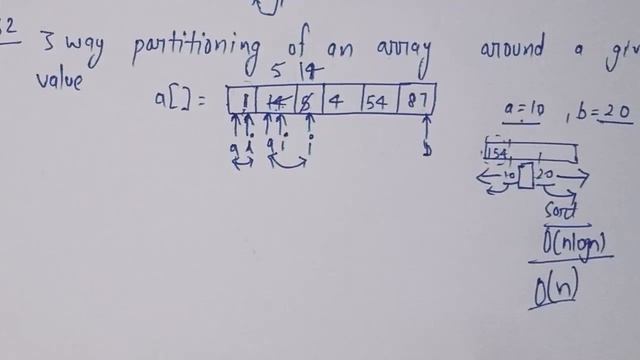 3 way partitioning of an array around a giv
value
5 14
a[] = 1 14 5 4 54 87
a i a i j b
a=10 , b=20
154
10 20
Sort
O(nlogn)
O(n)